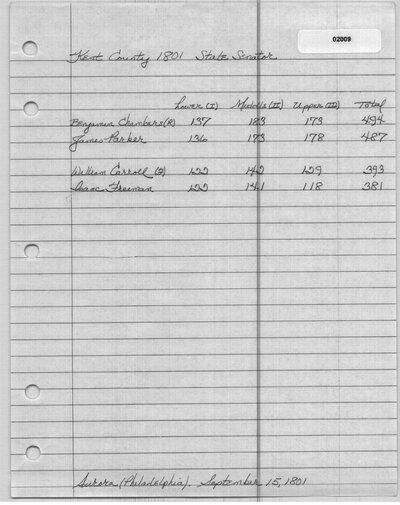 02009
Kent County 1801 State Senator
Lower (I) Middle (II) Upper (III) Total
Benjamin Chambers (R) 137 183 173 494
James Parker 136 173 178 487
William Carroll (F) 122 142 129 393
Isaac Freeman 122 141 118 381
Aurora (Philadelphia). September 15, 1801